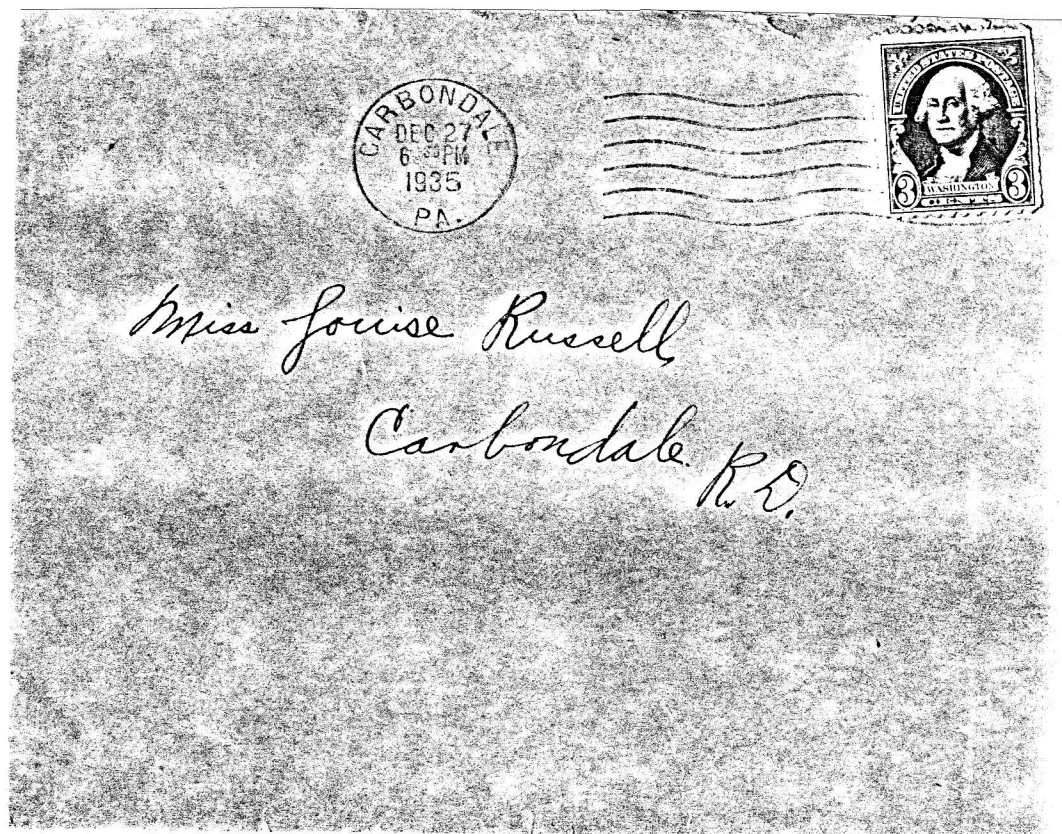 CARBONDALE
DEC 27
6 30 PM
1935
PA.
UNITED STATES POSTAGE
3 WASHINGTON 3
Miss Louise Russell,
Carbondale. R.D.